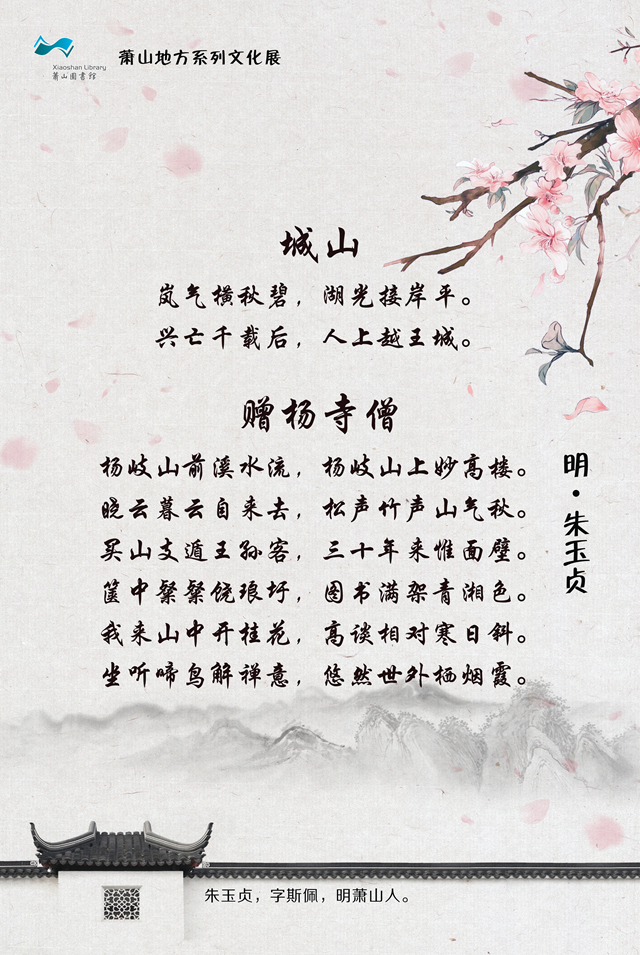 Xiaoshan Library
萧山图书馆
萧山地方系列文化展
城山
岚气横秋碧，湖光接岸平。
兴亡千载后，人上越王城。
赠杨寺僧
杨岐山前溪水流，杨岐山上妙高楼。
晓云暮云自来去，松声竹声山气秋。
买山支遁王孙客，三十年来惟面壁。
箧中粲粲饶琅玗，图书满架青湘色。
我来山中开桂花，高谈相对寒日斜。
坐听啼鸟解禅意，悠然世外栖烟霞。
明·朱玉贞
朱玉贞，字斯佩，明萧山人。